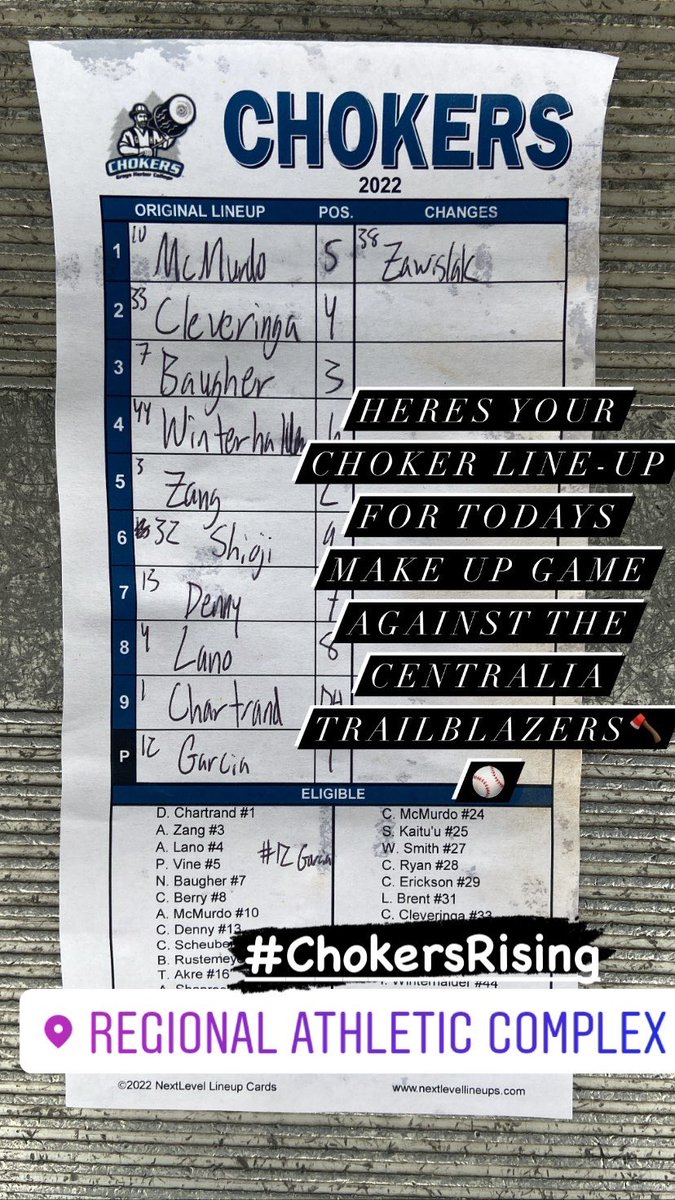 CHOKERS
CHOKERS
Grays Harbor College
2022
ORIGINAL LINEUP POS. CHANGES
1 10 McMurdo 5 38 Zawislak
2 33 Cleveringa 4
3 7 Baugher 3
4 44
5 3 Zang
6 32 Shioji 9
7 13 Denny 7
8 4 Lano 8
9 1 Chartrand
P 12 Garcia 1
HERES YOUR
CHOKER LINE-UP
FOR TODAYS
MAKE UP GAME
AGAINST THE
CENTRALIA
TRAILBLAZERS
ELIGIBLE
D. Chartrand #1
A. Zang #3
A. Lano #4
P. Vine #5
N. Baugher #7
C. Berry #8
A. McMurdo #10
C. Denny #13
C.
B.
T. Akre #16
#12 Garcia
C. McMurdo #24
S. Kaitu'u #25
W. Smith #27
C. Ryan #28
C. Erickson #29
L. Brent #31
C. Cleveringa #33
#44
#ChokersRising
REGIONAL ATHLETIC COMPLEX
©2022 NextLevel Lineup Cards www.nextlevellineups.com